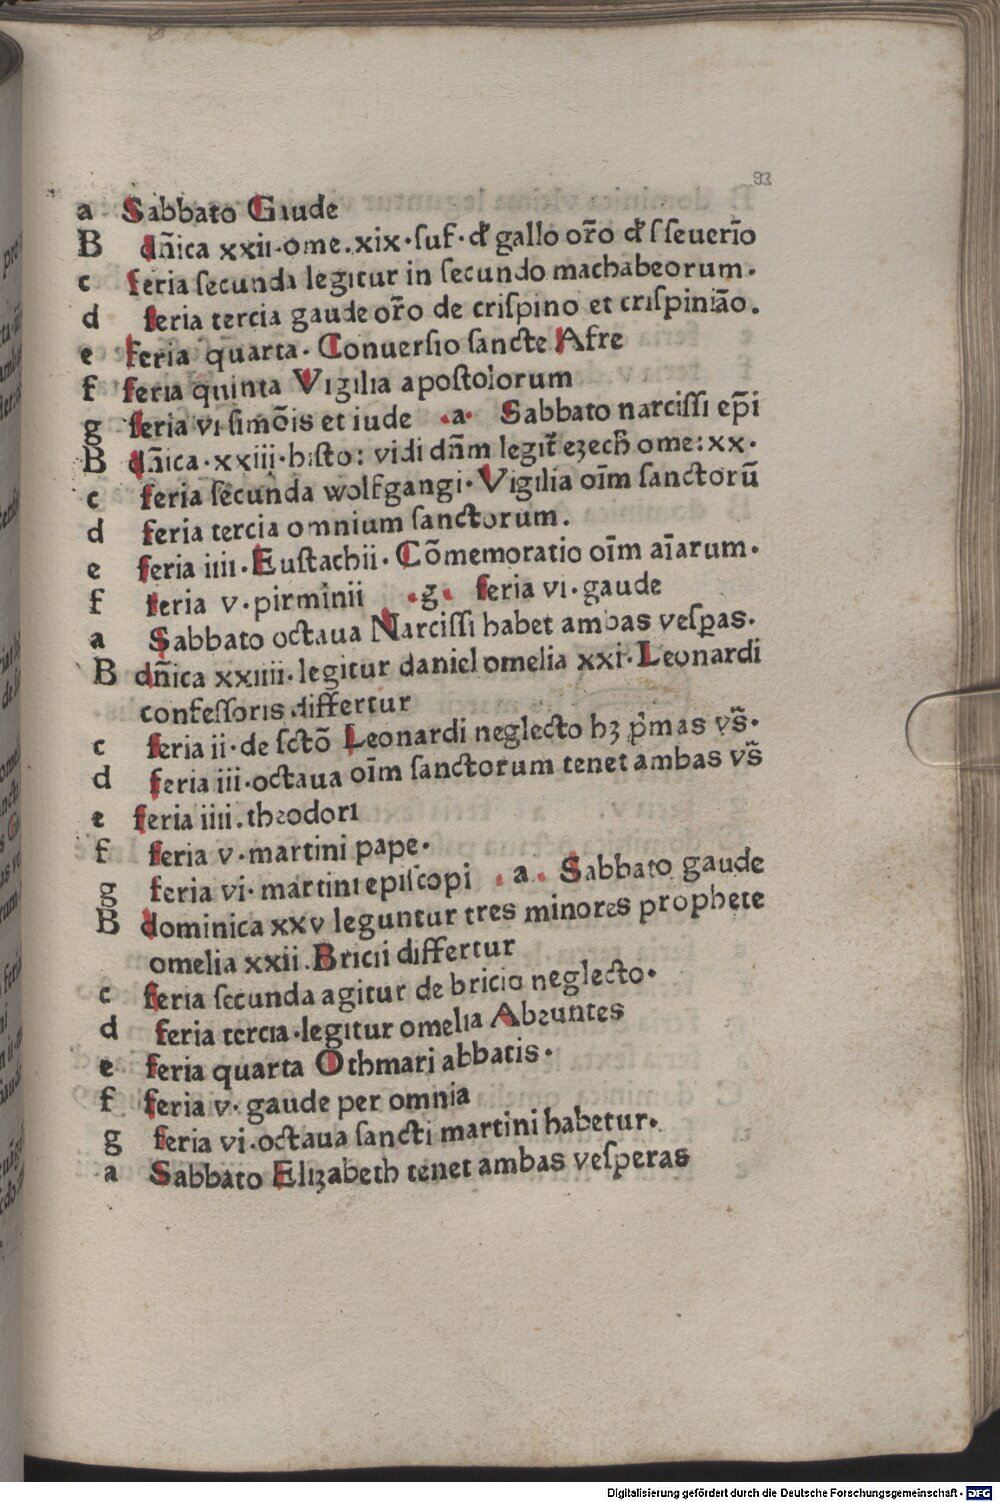 93
a Sabbato Gaude
B dn̄ica xxii·ome.xix·ſuf· gallo or̄o ſſeuerīo
c feria ſecunda legitur in ſecundo machabeorum·
d feria tercia gaude or̄o de criſpino et criſpiniāo.
e feria quarta· Conuerſio ſancte Afre
f feria quinta Vigilia apoſtolorum
g feria vi ſimōis et iude ·a· Sabbato narciſſi ep̄i
B dn̄ica·xxiii·hiſto: vidi dn̄m legit̄ eʒech̄ ome:xx·
c feria ſecunda wolfgangi·Vigilia oīm ſanctorū
d feria tercia omnium ſanctorum.
e feria iiii·Euſtachii·Cōmemoratio oīm aīarum·
f feria v·pirminii ·g· feria vi·gaude
a Sabbato octaua Narciſſi habet ambas veſꝑas·
B dn̄ica xxiiii·legitur daniel omelia xxi·Leonardi
confeſſoris differtur
c feria ii·de ſctō Leonardi neglecto hʒ p̄mas vs̄·
d feria iii·octaua oīm ſanctorum tenet ambas vs̄
e feria iiii.theodori
f feria v·martini pape·
g feria vi·martini epiſcopi ·a· Sabbato gaude
B dominica xxv leguntur tres minores prophete
omelia xxii.Bricii differtur
c feria ſecunda agitur de bricio neglecto·
d feria tercia·legitur omelia Abeuntes
e feria quarta Othmari abbatis·
f feria v·gaude per omnia
g feria vi·octaua ſancti martini habetur·
a Sabbato Eliʒabeth tenet ambas veſperas
Digitalisierung gefördert durch die Deutsche Forschungsgemeinschaft - DFG